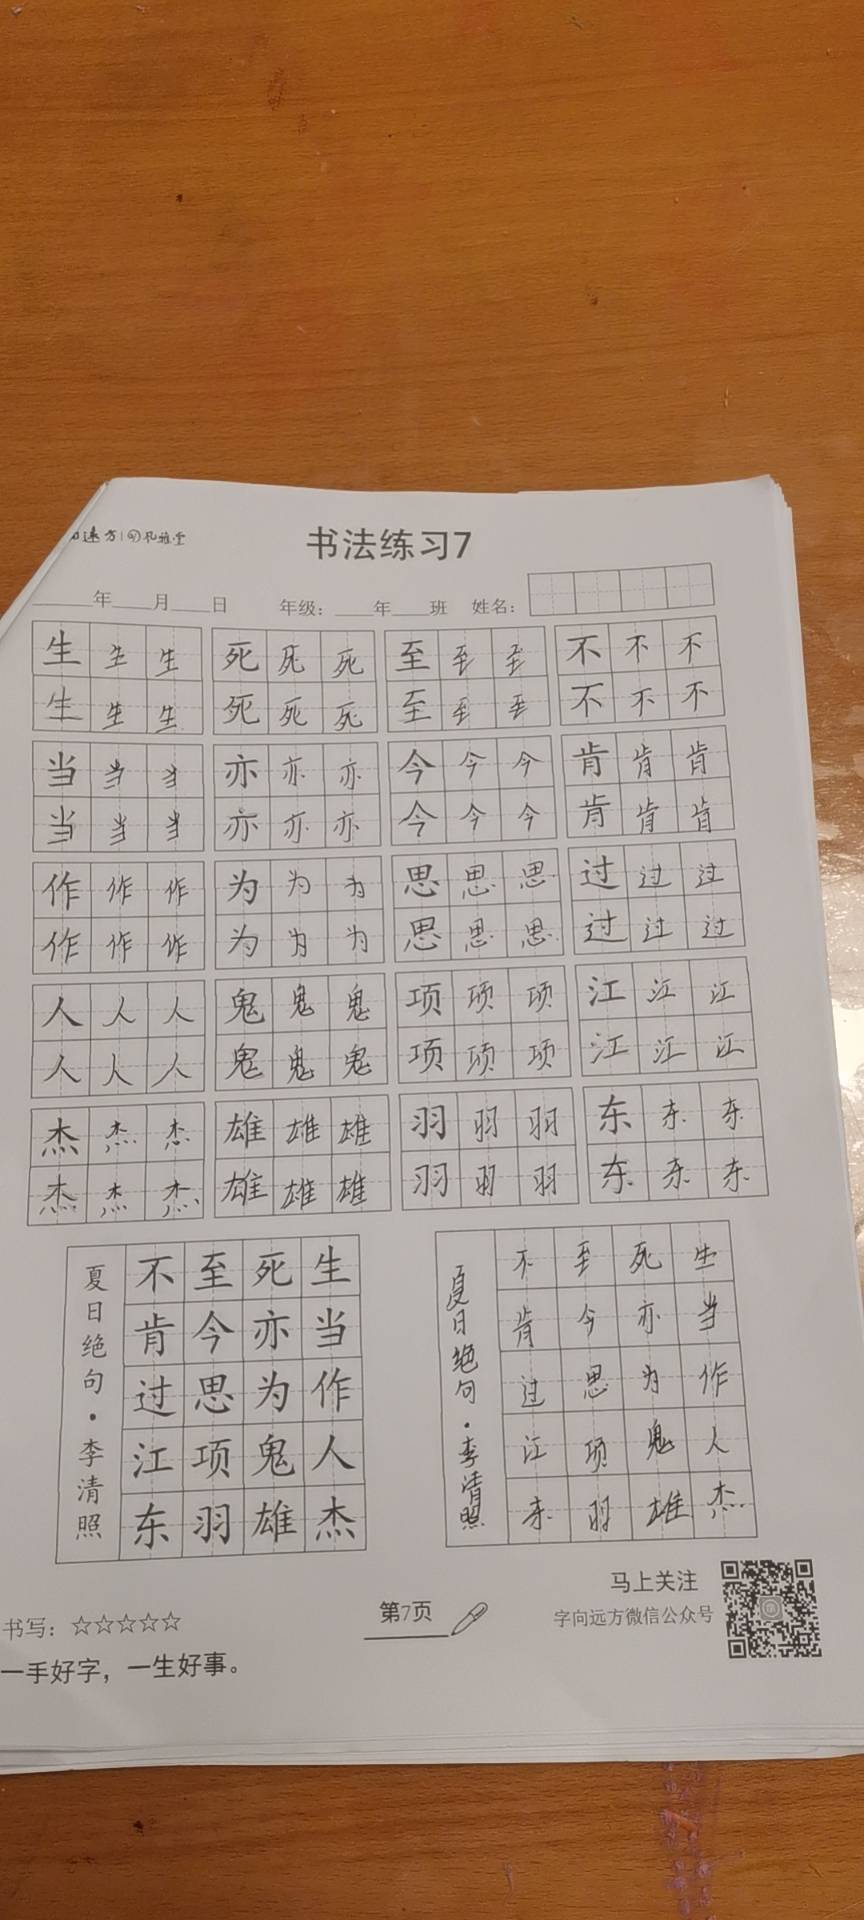 书法练习7
年 月 日 年级： 年 班 姓名：
生 生 生 死 死 死 至 至 至 不 不 不
生 生 生 死 死 死 至 至 至 不 不 不
当 当 当 亦 亦 亦 今 今 今 肯 肯 肯
当 当 当 亦 亦 亦 今 今 今 肯 肯 肯
作 作 作 为 为 为 思 思 思 过 过 过
作 作 作 为 为 为 思 思 思 过 过 过
人 人 人 鬼 鬼 鬼 项 项 项 江 江 江
人 人 人 鬼 鬼 鬼 项 项 项 江 江 江
杰 杰 杰 雄 雄 雄 羽 羽 羽 东 东 东
杰 杰 杰 雄 雄 雄 羽 羽 羽 东 东 东
生当作人杰
死亦为鬼雄
至今思项羽
不肯过江东
夏日绝句·李清照
生当作人杰
死亦为鬼雄
至今思项羽
不肯过江东
夏日绝句·李清照
书写：☆☆☆☆☆
一手好字，一生好事。
第7页
马上关注
字向远方微信公众号